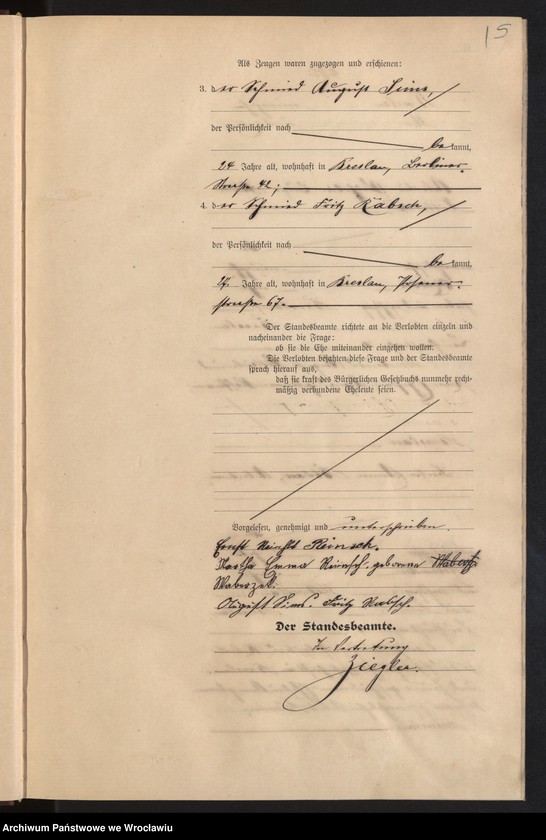 15
Als Zeugen waren zugezogen und erschienen:
3. der Schmied August Sims,
der Persönlichkeit nach
be kannt,
24 Jahre alt, wohnhaft in Breslau, Berliner-
strasse 42;
4. der Schmied Fritz Rabsch,
der Persönlichkeit nach
be kannt,
Jahre alt, wohnhaft in Breslau, Posener-
strasse 67.
Der Standesbeamte richtete an die Verlobten einzeln und
nacheinander die Frage:
ob sie die Ehe miteinander eingehen wollen.
Die Verlobten bejahten diese Frage und der Standesbeamte
sprach hierauf aus,
daß sie kraft des Bürgerlichen Gesetzbuchs nunmehr recht-
mäßig verbundene Eheleute seien.
Vorgelesen, genehmigt und unterschrieben.
Ernst Reinsch.
Martha Emma Reinsch. geborene
Waberzek.
August Sims. Fritz Rabsch.
Der Standesbeamte.
In Vertretung
Ziegler.
Archiwum Państwowe we Wrocławiu